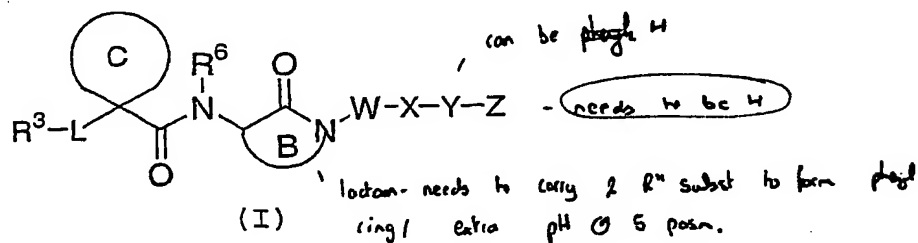 can be H
C
R⁶
O
R³-L
N
N-W-X-Y-Z - needs to be H
B
O
lactam - needs to carry 2 R" subst to form
ring / extra pH @ 5 posn.
(I)